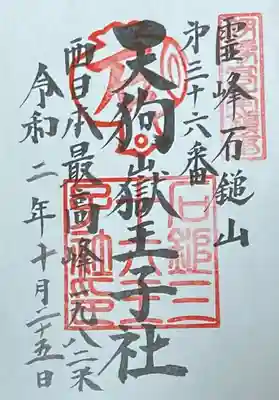 霊峰石鎚山
第三十六番
天狗嶽王子社
西日本最高峰一九八二米
令和二年十月二十五日